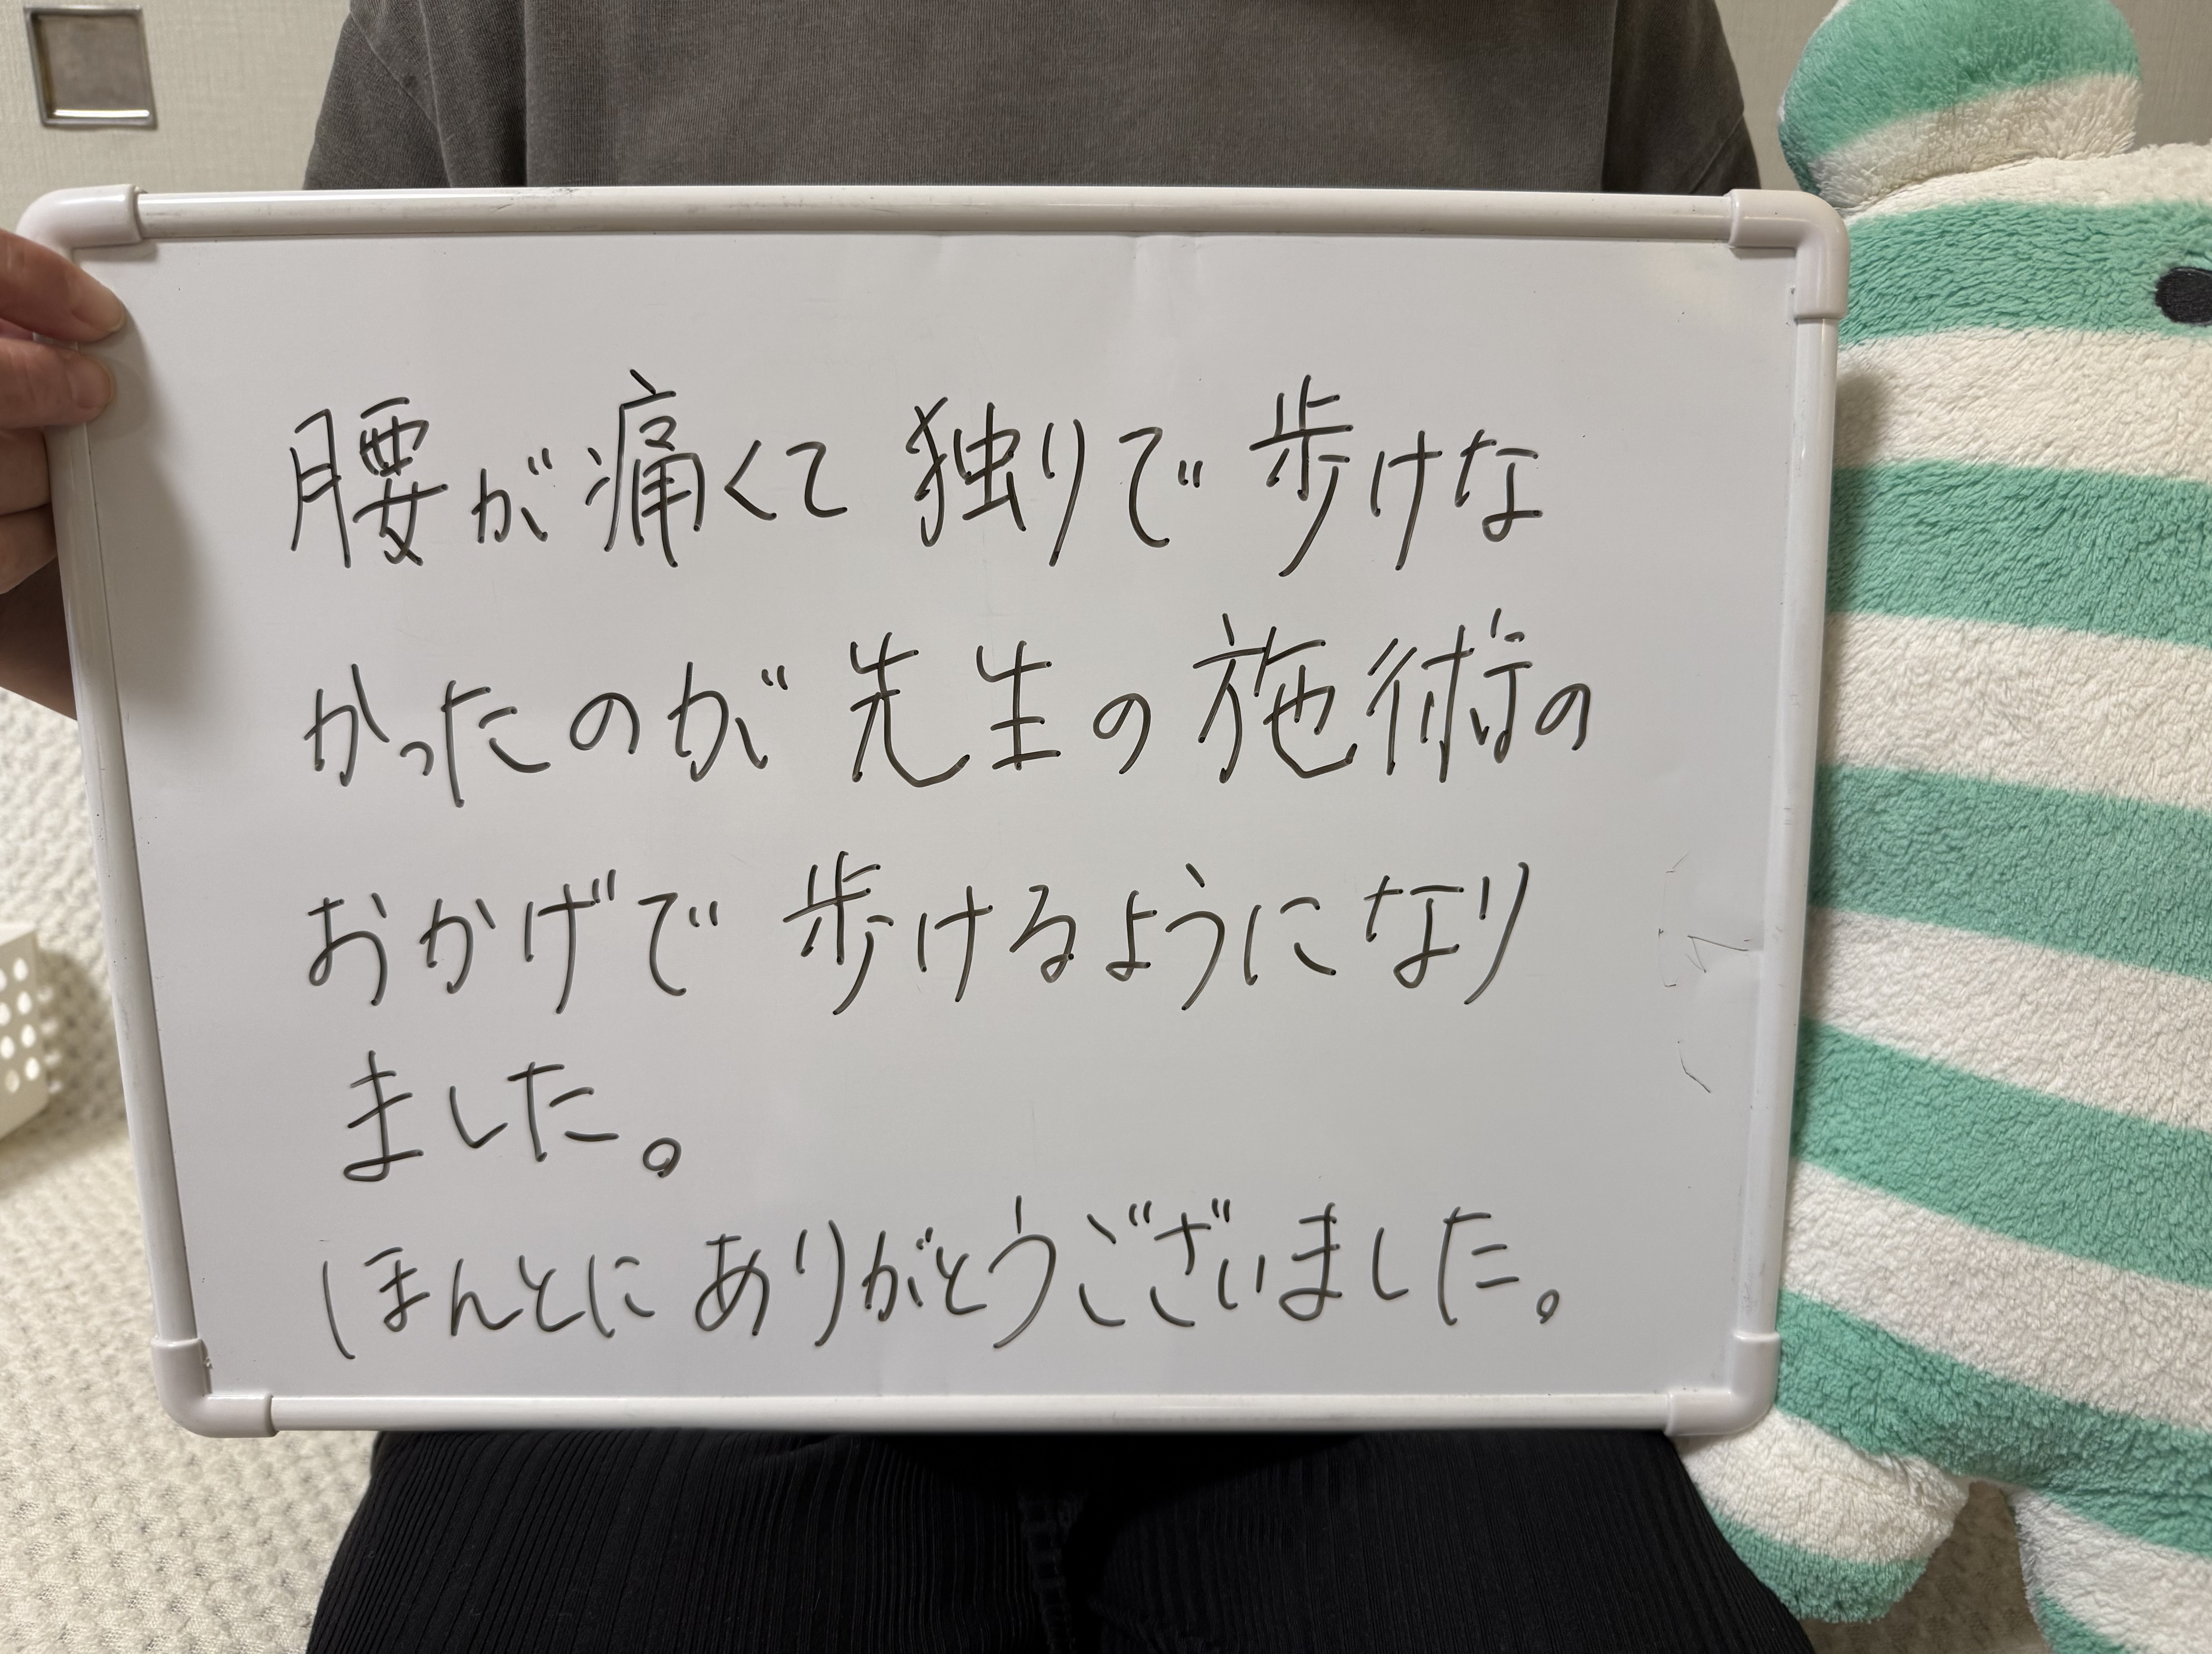 腰が痛くて 独りで 歩けな
かったのが 先生の施術の
おかげで 歩けるようになり
ました。
ほんとに ありがとうございました。